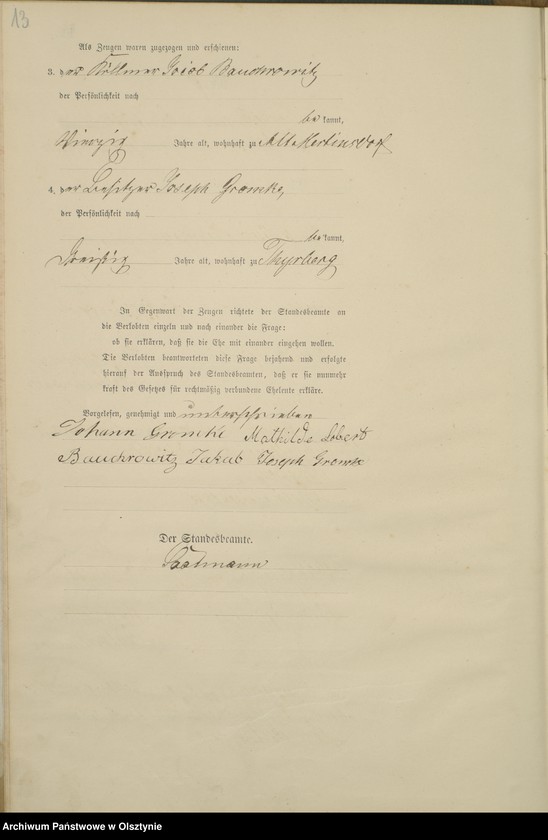 13
Als Zeugen waren zugezogen und erschienen:
3. der Köllmer Baudrowitz
der Persönlichkeit nach
be kannt,
Vierzig Jahre alt, wohnhaft zu Alt Martinsdorf
4. der Besitzer Joseph Gromcke,
der Persönlichkeit nach
be kannt,
dreißig Jahre alt, wohnhaft zu Thyrberg
In Gegenwart der Zeugen richtete der Standesbeamte an
die Verlobten einzeln und nach einander die Frage:
ob sie erklären, daß sie die Ehe mit einander eingehen wollen.
Die Verlobten beantworteten diese Frage bejahend und erfolgte
hierauf der Ausspruch des Standesbeamten, daß er sie nunmehr
kraft des Gesetzes für rechtmäßig verbundene Eheleute erkläre.
Vorgelesen, genehmigt und unterschrieben
Johann Gromcke Mathilde
Baudrowitz Jakob Joseph Gromcke
Der Standesbeamte.
Archiwum Państwowe w Olsztynie